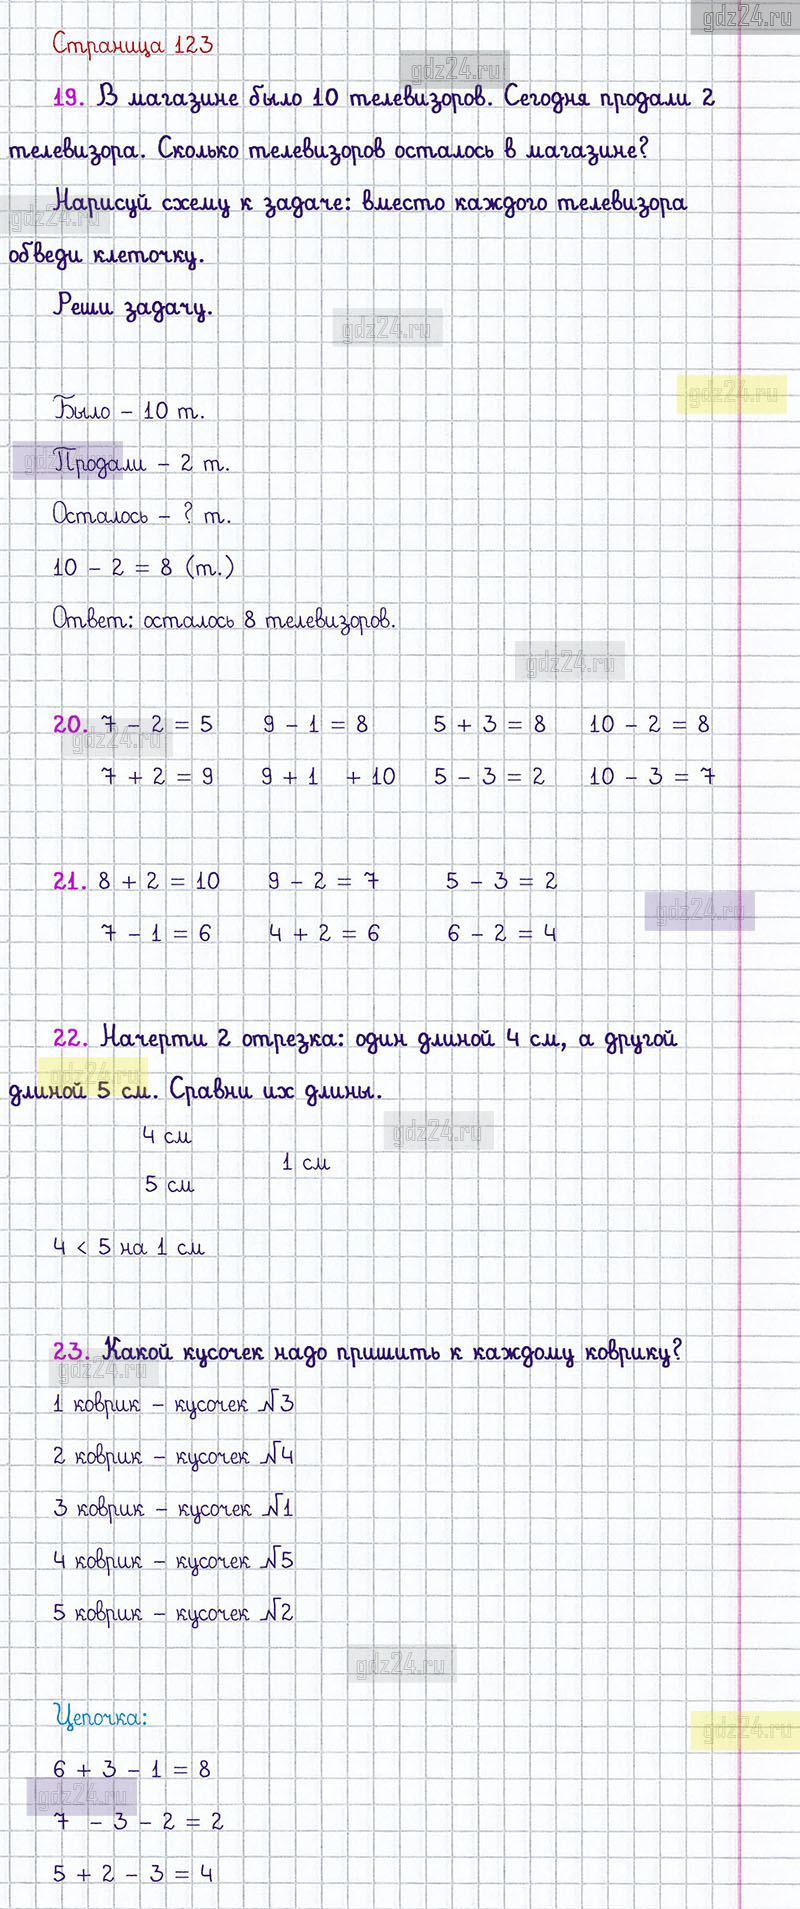 gdz24.ru
Страница 123
gdz24.ru
19. В магазине было 10 телевизоров. Сегодня продали 2
телевизора. Сколько телевизоров осталось в магазине?
Нарисуй схему к задаче: вместо каждого телевизора
gdz24.ru
обведи клеточку.
Реши задачу.
gdz24.ru
gdz24.ru
Было – 10 т.
gdz24.ru
Продали – 2 т.
Осталось – ? т.
10 – 2 = 8 (т.)
Ответ: осталось 8 телевизоров.
gdz24.ru
20. 7 – 2 = 5 9 – 1 = 8 5 + 3 = 8 10 – 2 = 8
gdz24.ru
7 + 2 = 9 9 + 1 + 10 5 – 3 = 2 10 – 3 = 7
21. 8 + 2 = 10 9 – 2 = 7 5 – 3 = 2
gdz24.ru
7 – 1 = 6 4 + 2 = 6 6 – 2 = 4
22. Начерти 2 отрезка: один длиной 4 см, а другой
gdz24.ru
длиной 5 см. Сравни их длины.
gdz24.ru
4 см
1 см
5 см
4 < 5 на 1 см
23. Какой кусочек надо пришить к каждому коврику?
gdz24.ru
1 коврик – кусочек №3
2 коврик – кусочек №4
3 коврик – кусочек №1
4 коврик – кусочек №5
5 коврик – кусочек №2
gdz24.ru
Цепочка:
gdz24.ru
6 + 3 – 1 = 8
gdz24.ru
7 – 3 – 2 = 2
5 + 2 – 3 = 4